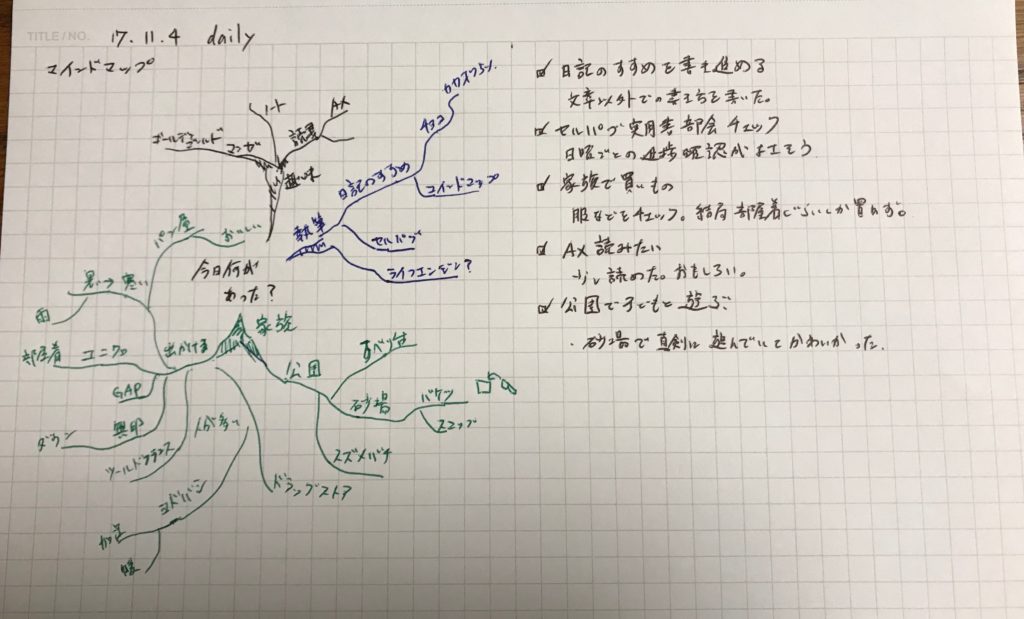 TITLE/NO. 17.11.4 daily
マインドマップ
ノート
AX
読書
ゴールデンゴールド
マンガ
趣味
日記のすすめ
マインドマップ
執筆
セルパブ
ライフエンジン?
今日何が
あった?
家族
おいしい
パン屋
暑い→寒い
雨
出かける
ユニクロ
部屋着
GAP
無印
ダウン
ツールドフランス
人が多い
ヨドバシ
ドラッグストア
公園
すべり台
砂場
バケツ
スコップ
スズメバチ
日記のすすめを書き進める
文章以外での書き方を書いた。
セルパブ実用書部会チェック
日曜ごとの進捗確認がよさそう
家族で買いもの
服などをチェック。結局部屋着ぐらいしか買わず。
AX 読みたい
少し読めた。おもしろい。
公園で子どもと遊ぶ
・砂場で真剣に遊んでいてかわいかった。